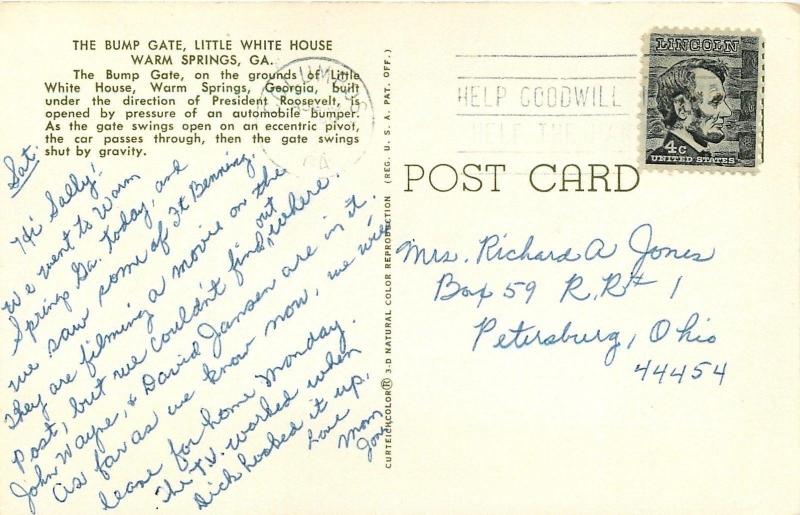 THE BUMP GATE, LITTLE WHITE HOUSE
WARM SPRINGS, GA.
The Bump Gate, on the grounds of Little
White House, Warm Springs, Georgia, built
under the direction of President Roosevelt, is
opened by pressure of an automobile bumper.
As the gate swings open on an eccentric pivot,
the car passes through, then the gate swings
shut by gravity.
Sat.
Hi Sally!
We went to Warm
Springs Ga. today, and
we saw some of Ft Benning.
They are filming a movie on the
post, but we couldn't find out where.
John Wayne, & David Jansen are in it.
As far as we know now, we will
leave for home Monday.
The T.V. worked when
Dick hooked it up.
Love
Mom
Jones
CURTEICHCOLOR® 3-D NATURAL COLOR REPRODUCTION (REG. U.S.A. PAT. OFF.)
HELP GOODWILL
HELP THE
GA
LINCOLN
4c
UNITED STATES
POST CARD
Mrs. Richard A Jones
Box 59 R.R# 1
Petersburg, Ohio
44454